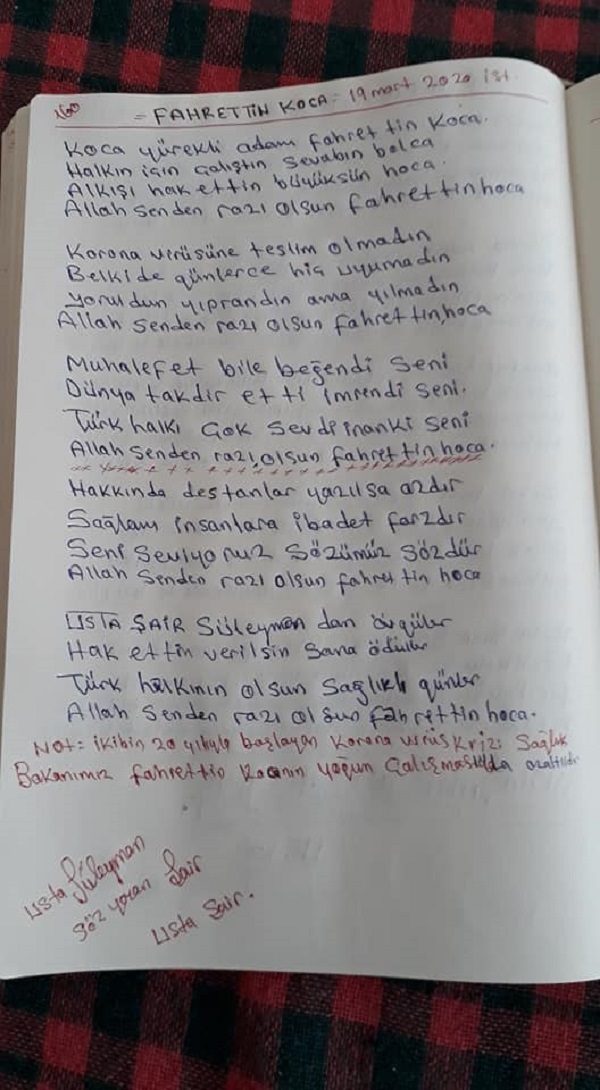 = FAHRETTİN KOCA = 19 mart 2020 ist.
Koca yürekli adam fahrettin Koca.
Halkın için çalıştın sevabın bolca
Alkışı hak ettin büyüksün hoca.
Allah senden razı olsun fahrettin hoca
Korona virüsüne teslim olmadın
Belki de günlerce hiç uyumadın
yoruldun yıprandın ama yılmadın
Allah senden razı olsun fahrettin hoca
Muhalefet bile beğendi seni
Dünya takdir etti imrendi seni.
Türk halkı çok sevdi inanki seni
Allah senden razı olsun fahrettin hoca.
Hakkında destanlar yazılsa azdır
Sağlam insanlara ibadet farzdır
Seni seviyoruz sözümüz sözdür
Allah senden razı olsun fahrettin hoca
USTA ŞAİR Süleyman dan övgüler
Hak ettin verilsin sana ödüller
Türk halkının olsun sağlıklı günler
Allah senden razı olsun fahrettin hoca.
NOT: ikibin 20 yılıyla başlayan korona virüs krizi Sağlık
Bakanımız fahrettin kocanın yoğun çalışmasıyla azaltıldı
Usta Süleyman
Söz yazan Şair
Usta Şair.